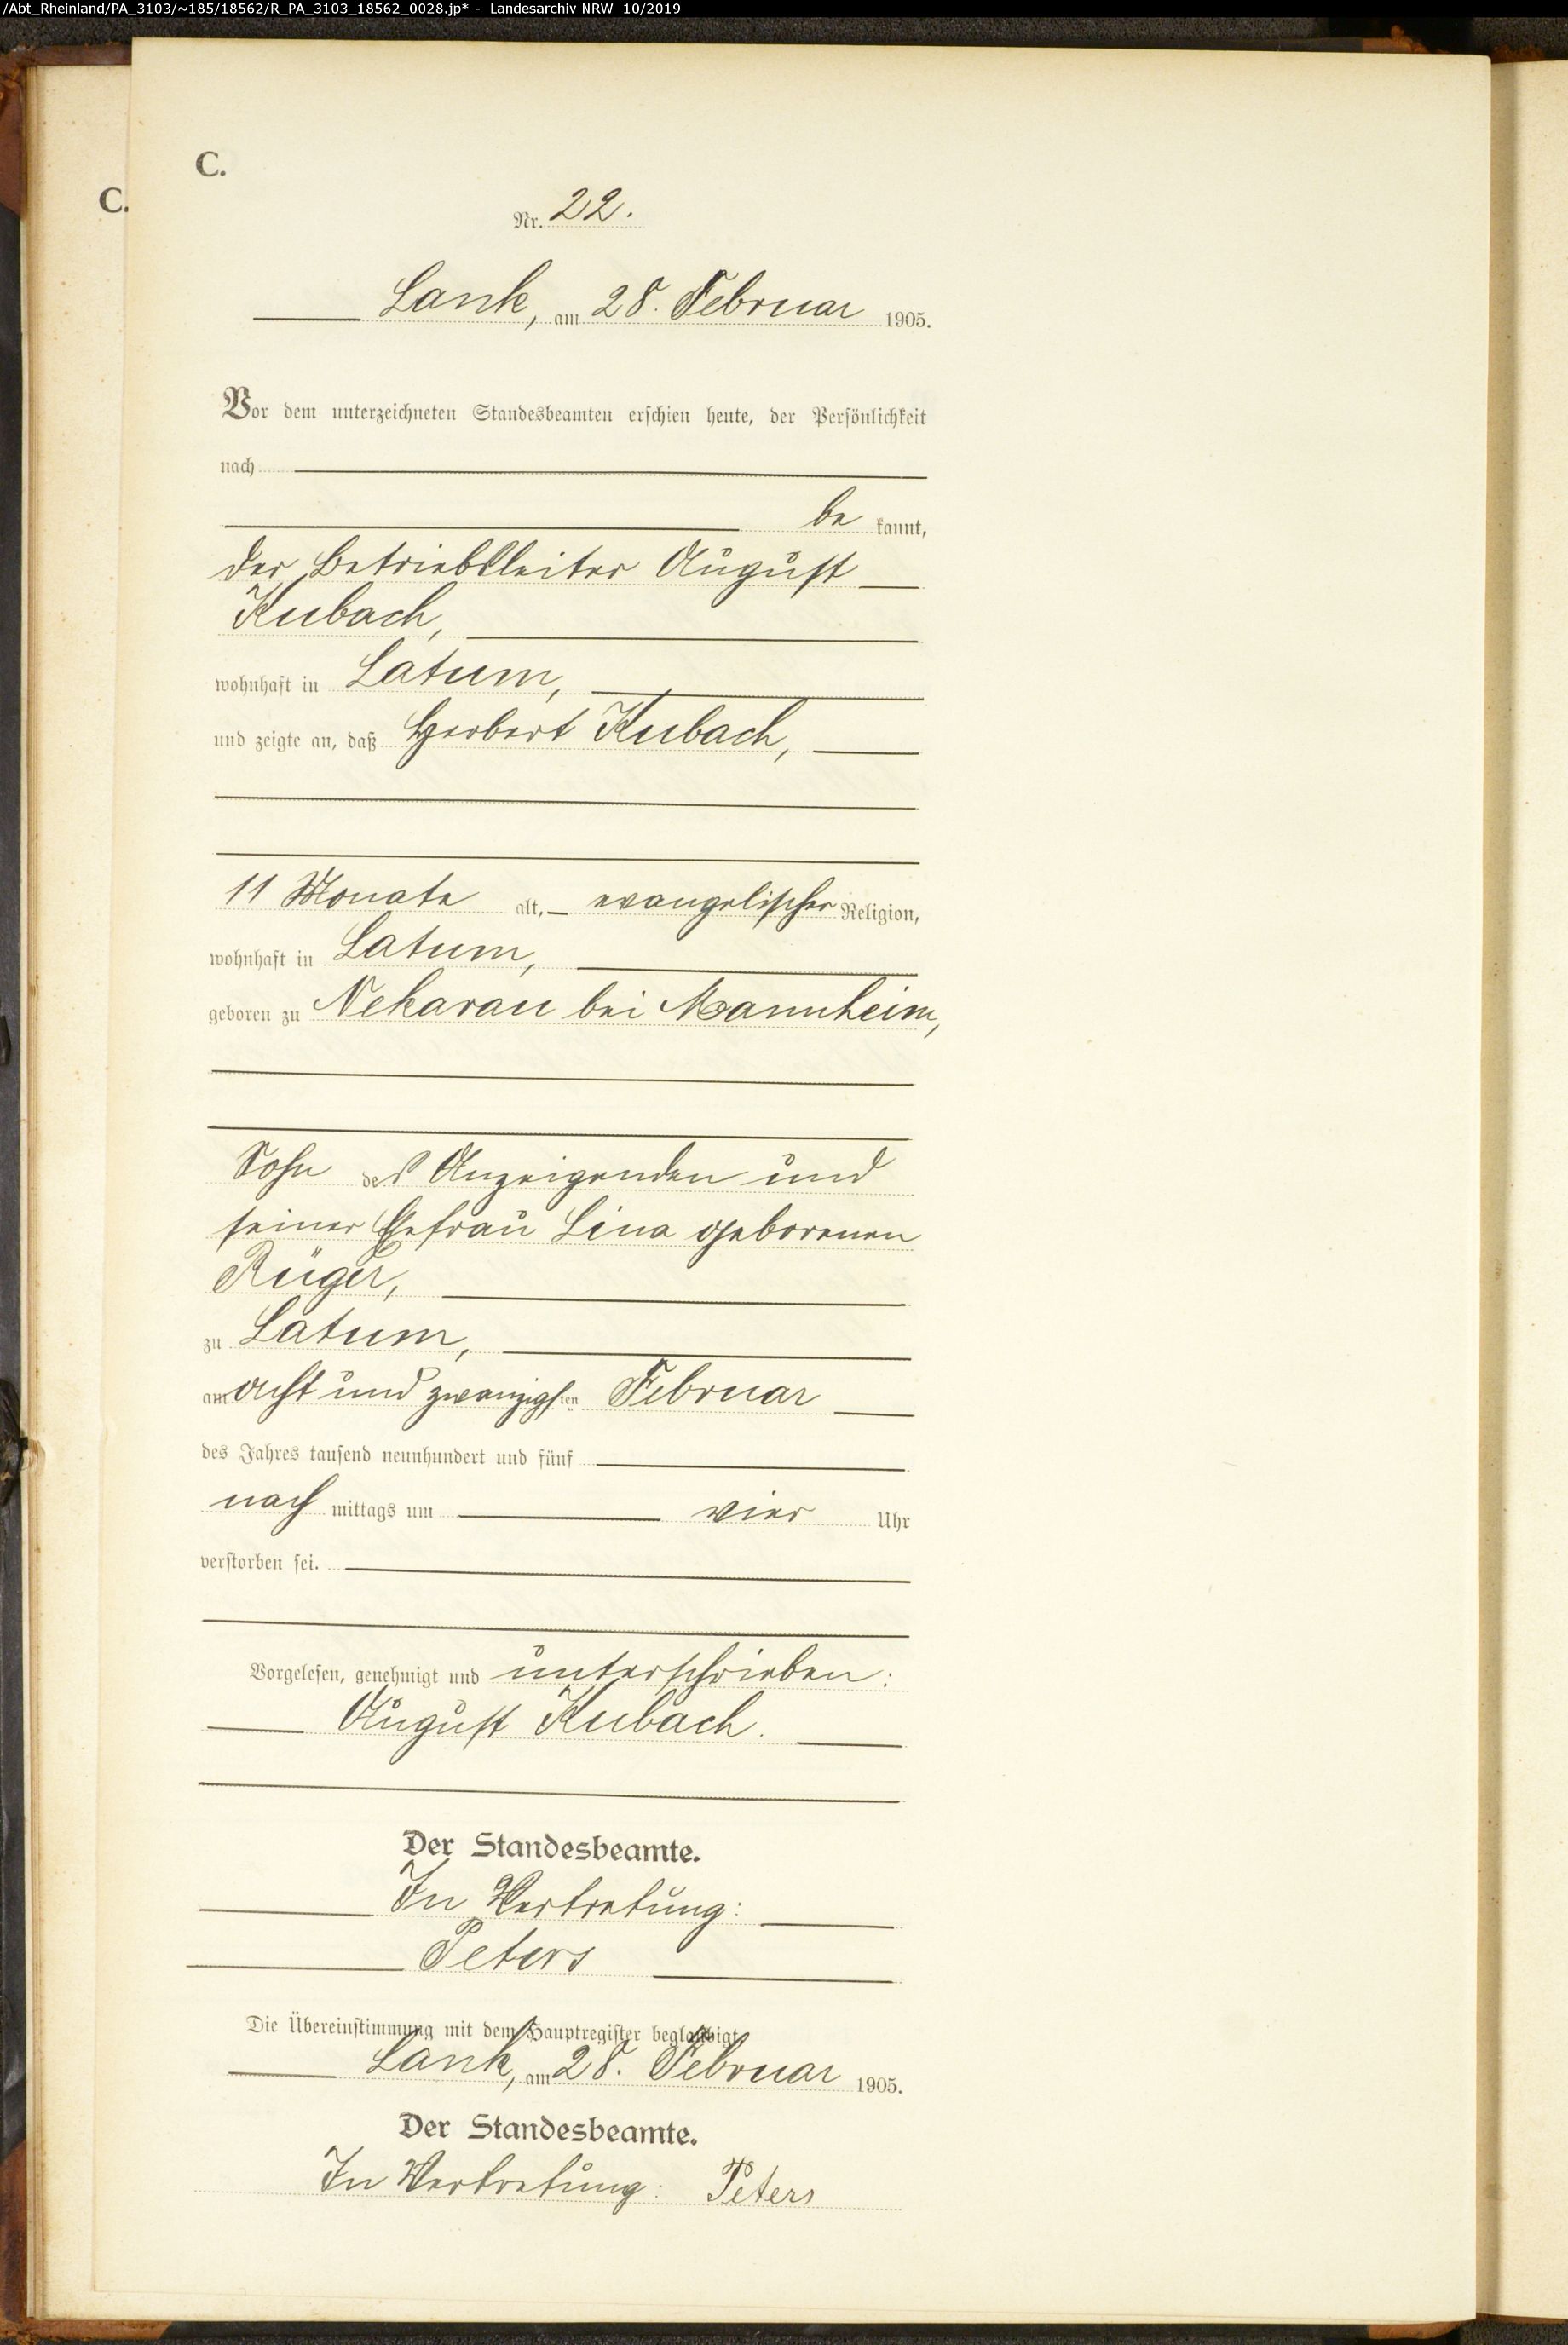 /Abt_Rheinland/PA_3103/~185/18562/R_PA_3103_18562_0028.jp* - Landesarchiv NRW 10/2019
C.
C.
Nr. 22.
Lank, am 28. Februar 1905.
Vor dem unterzeichneten Standesbeamten erschien heute, der Persönlichkeit
nach
be kannt,
der Betriebsleiter August
Kubach,
wohnhaft in Latum,
und zeigte an, daß Herbert Kubach,
11 Monate alt, evangelischer Religion,
wohnhaft in Latum,
geboren zu Nekarau bei Mannheim,
Sohn des Anzeigenden und
seiner Ehefrau Lina geborenen
Rüger,
zu Latum,
am acht und zwanzigsten Februar
des Jahres tausend neunhundert und fünf
nach mittags um vier Uhr
verstorben sei.
Vorgelesen, genehmigt und unterschrieben:
August Kubach.
Der Standesbeamte.
In Vertretung:
Peters
Die Übereinstimmung mit dem Hauptregister beglaubigt
Lank, am 28. Februar 1905.
Der Standesbeamte.
In Vertretung: Peters